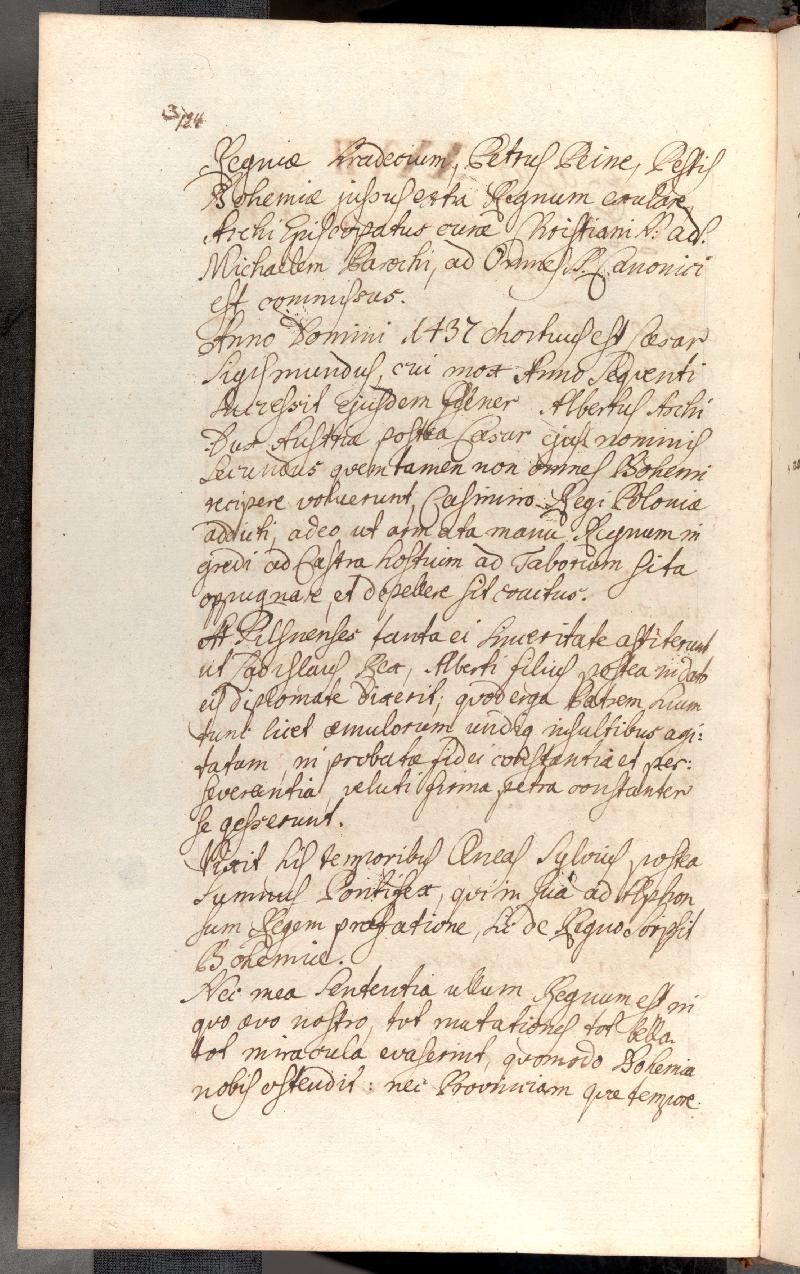 124
Regniæ Hradecium, Petrus Peine, Pestis
Bohemiæ jussus extra Regnum exulare,
Archi Episcopatus curæ Christiani P: ad S.
Michaelem Parochi, ad Omnes S.S. Canonici
est commissus.
Anno Domini 1437 Mortuus est Cæsar
Sigismundus, cui mox Anno Seqventi
Successit Ejusdem Gener Albertus Archi
Dux Austriæ postea Cæsar ejus nominis
Secundus qvem tamen non omnes Bohemi
recipere voluerunt, Casimiro Regi Poloniæ
addicti, adeo ut armata manu Regnum in
gredi ad Castra hostium ad Taborium sita
oppugnare, et depellere sit coactus.
At Pilsnenses tanta ei sinceritate astiterunt
ut Ladislaus Rex, Alberti filius postea in dato
eis diplomate dixerit; quod erga Patrem suum
tunc licet æmulorum undiq insultibus agi:
tatum, in probatæ fidei constantia et per:
severantia, veluti firma petra constanter
se gesserunt.
Vixit his temporibus Æneas Sylvius postea
Summus Pontifex, qui in sua ad Alphon
sum Regem præfatione, sic de Regno Scripsit
Bohemiæ.
Nec mea sententia ullum Regnum est in
quo ævo nostro, tot mutationes tot bella
tot miracula evaserint, quomodo Bohemia
nobis ostendit: nec Provinciam quæ tempore